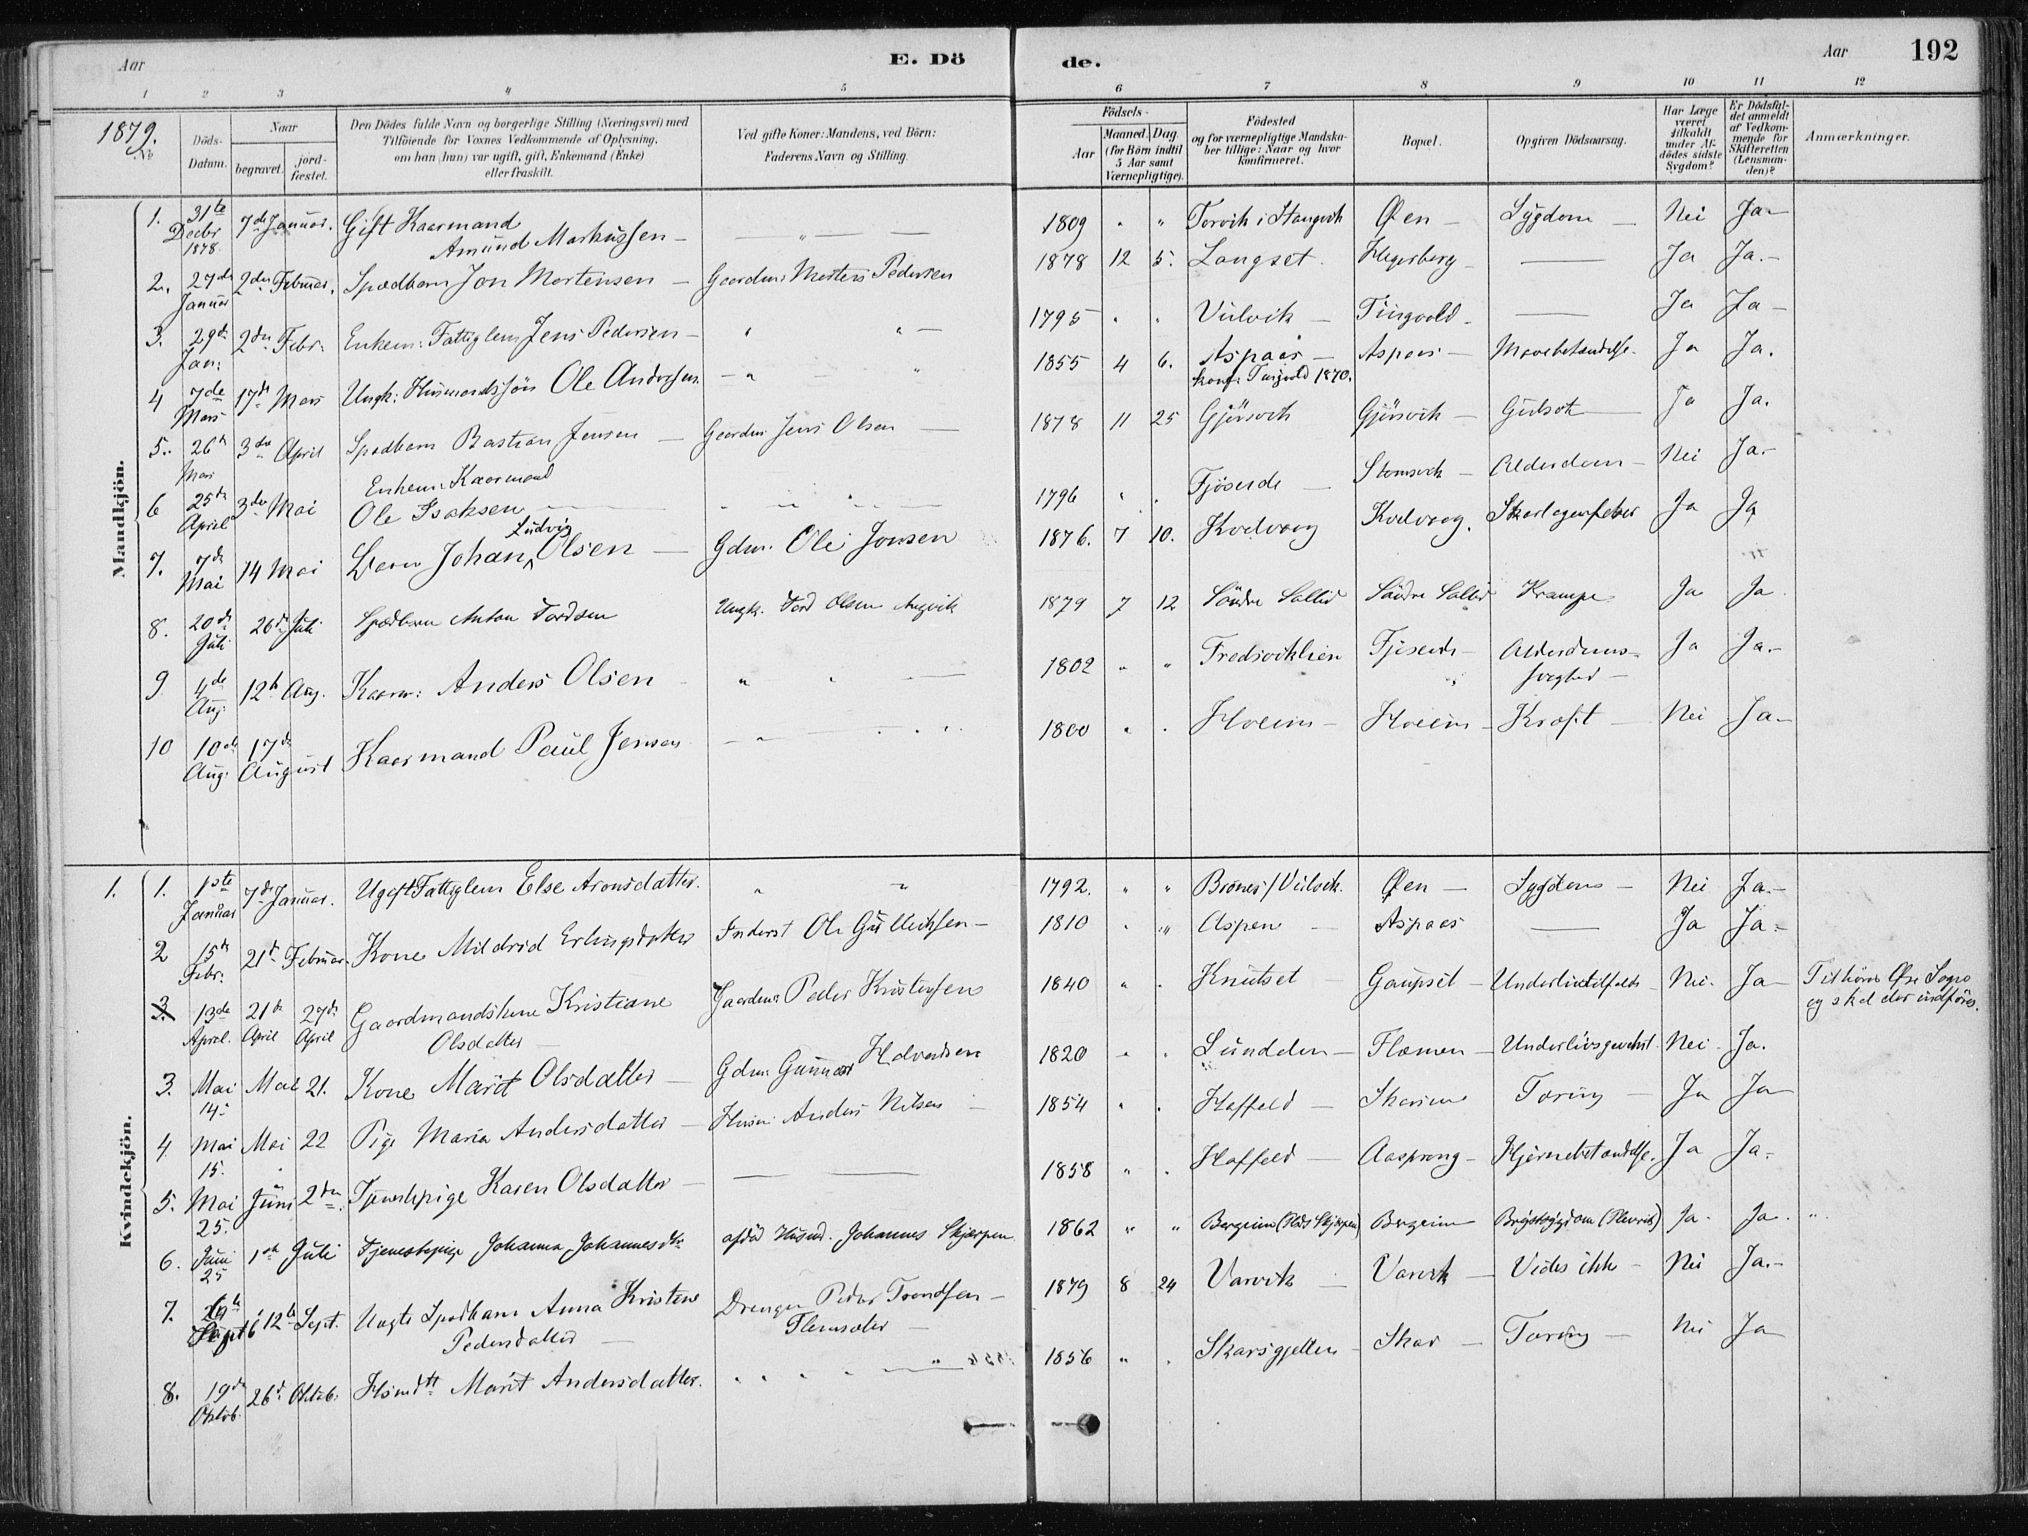 Aar
E. Dö
de.
Aar
192
1 2 3 4 5 6 7 8 9 10 11 12
1879.
No
Döds-Datum.
Naar
begravet.
jord-fæstet.
Den Dödes fulde Navn og borgerlige Stilling (Næringsvei) med
Tilföiende for Voxnes Vedkommende af Oplysning,
om han (hun) var ugift, gift, Enkemand (Enke)
eller fraskilt.
Ved gifte Koner: Mandens, ved Börn:
Faderens Navn og Stilling.
Födsels-
Aar
Maaned. Dag.
(for Börn indtil
5 Aar samt
Værnepligtige).
Födested
og for værnepligtige Mandska-
ber tillige: Naar og hvor
konfirmeret.
Bopæl.
Opgiven Dödsaarsag.
Har Læge
været
tilkaldt
under Af-
dödes sidste
Sygdom?
Er Dödsfal-
det anmeldt
af Vedkom-
mende for
Skifteretten
(Lensman-
den)?
Anmærkninger.
Mandkjön.
1. 31te Decbr 1878. 7de Januar. Gift Kaarmand Amund Markussen 1809 " " Torvik i Stangvik Øen Sygdom Nei Ja
2. 27de Januar 2den Februar. Spædbarn Jon Mortensen Gaardm: Morten Pedersen 1878 12 5. Langset. Hegerberg Ja Ja.
3. 29de Jan: 2den Febr: Enkem: Fattiglem Jens Pedersen " " 1795 " " Vulvik Tingvold Ja Ja
4 7de Mars 17de Mars Ungk: Husmandssön Ole Andersen " " 1855 4 6. Aspaas konf: Tingvold 1870. Aspaas Mavebetændelse. Ja Ja.
5. 26de Mars 3die April Spædbarn Bastian Jensen Gaardm: Jens Olsen 1878 11 25 Gjörsvik Gjörsvik Gulsot Ja Ja.
6 25de April 3die Mai Enkem: Kaarmand Ole Isaksen 1796 " " Fjöseide Alderdom Nei Ja
7. 7de Mai 14 Mai Barn Johan Ludvig Olsen Gdm: Ole Jonsen 1876. 7 10. Kvelvaag Kvelvaag. Skarlagensfeber Ja Ja
8. 20de Juli 26de Juli Spædbarn Anton Tordsen Ungk. Tord Olsen Angvik 1879 7 12 Söndre Sollid Söndre Sollid Krampe Ja Ja
9 4de Aug. 12te Aug. Kaarm: Anders Olsen " " 1802 " " Fredsviklien Fjöseide Alderdoms-svaghed Ja Ja.
10 10de Aug: 17de August Kaarmand Paul Jensen " 1800 " " Hoeim Hoeim Kræft Nei Ja
Kvindekjön.
1. 1. 1ste Januar 7de Januar. Ugift Fattiglem Else Aronsdatter. " " 1792. " " Brönes/Vulvik. Øen Sygdom Nei Ja.
2 15de Febr. 21de Februar. Kone Mildrid Erlingsdatter Inderst Ole Gulleiksen 1810 " " Aspen Aspaas Ja Ja
3. 13de April. 21de April 27de April Gaardmandskone Kristiane Olsdatter Gaardm: Peder Kristensen 1840 " " Knutset Gaupset Underlivstilfælde Nei. Ja Tilhörer Øre Sogn og skal der indföres.
3. Mai 14. Mai 21. Kone Marit Olsdatter Gdm: Gunnar Halvorsen 1820 " " Lundelien Flemmen Nei. Ja.
4 Mai 15. Mai 22 Pige Maria Andersdatter Husm: Anders Nilsen 1854 " " Haffeld Tæring Ja Ja
5. Mai 25. Juni 2den Tjenestepige Karen Olsdatter 1858 " " Haffeld Aasprong Hjernebetændelse. Ja Ja.
6. Juni 25 1ste Juli Tjenestepige Johanna Johannesdtr afdöd Husmd. Johannes Skjærpen 1862 " " Bergeim (Plads Skjærpen) Bergeim Brystsygdom (Plevrit) Ja. Ja.
7. Sept 6 12te Sept. Uægte Spædbarn Anna Kristine Pedersdatter Drengen Peder Trondsen Flemsæter 1879 8 24 Varvik Varvik Vides ikke Nei Ja.
8. 19de Oktob. 26de Oktob. Husmdtr Marit Andersdatter. 1856 " " Skarsgjellen Skar Tæring Nei Ja